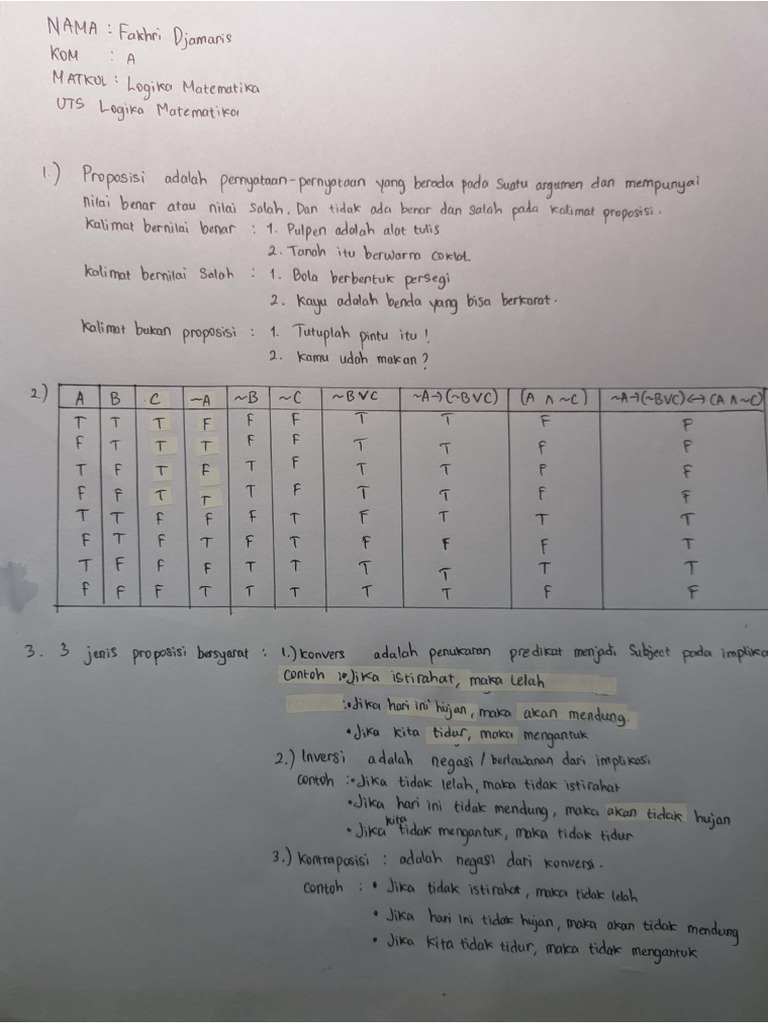 NAMA : Fakhri Djamaris
KOM : A
MATKUL : Logika Matematika
UTS Logika Matematika
1.) Proposisi adalah pernyataan-pernyataan yang berada pada suatu argumen dan mempunyai
nilai benar atau nilai salah. Dan tidak ada benar dan salah pada kalimat proposisi.
Kalimat bernilai benar : 1. Pulpen adalah alat tulis
2. Tanah itu berwarna coklat.
Kalimat bernilai Salah : 1. Bola berbentuk persegi
2. Kayu adalah benda yang bisa berkarat.
Kalimat bukan proposisi : 1. Tutuplah pintu itu !
2. Kamu udah makan ?
2.) A B C ~A ~B ~C ~B∨C ~A→(~B∨C) (A ∧ ~C) ~A→(~B∨C)↔(A∧~C)
T T T F F F T T F F
F T T T F F T T F F
T F T F T F T T F F
F F T T T F T T F F
T T F F F T F T T T
F T F T F T F F F T
T F F F T T T T T T
F F F T T T T T F F
3. 3 jenis proposisi bersyarat : 1.) Konvers adalah penukaran predikat menjadi Subject pada implika
Contoh : • Jika istirahat, maka lelah
: • Jika hari ini hujan, maka akan mendung.
• Jika kita tidur, maka mengantuk
2.) Inversi adalah negasi / berlawanan dari implikasi
Contoh : • Jika tidak lelah, maka tidak istirahat
• Jika hari ini tidak mendung, maka akan tidak hujan
• Jika kita tidak mengantuk, maka tidak tidur
3.) Kontraposisi : adalah negasi dari konversi.
Contoh : • Jika tidak istirahat, maka tidak lelah
• Jika hari ini tidak hujan, maka akan tidak mendung
• Jika kita tidak tidur, maka tidak mengantuk